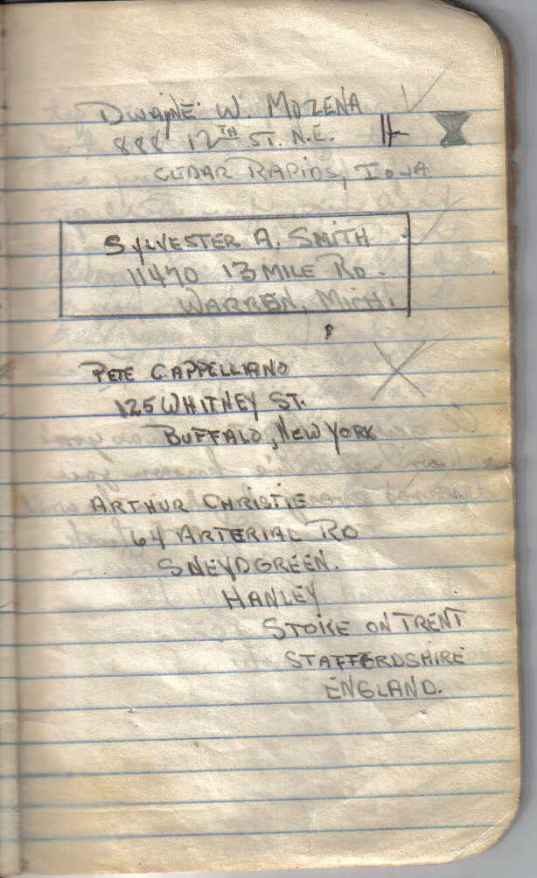 DWAINE W. MOZENA
888 12TH ST. N.E.
CEDAR RAPIDS, IOWA
SYLVESTER A. SMITH
11470 13 MILE RD.
WARREN, MICH.
PETE CAPPELLIANO
125 WHITNEY ST.
BUFFALO, NEW YORK
ARTHUR CHRISTIE
64 ARTERIAL RD
SNEYDGREEN.
HANLEY
STOKE ON TRENT
STAFFORDSHIRE
ENGLAND.